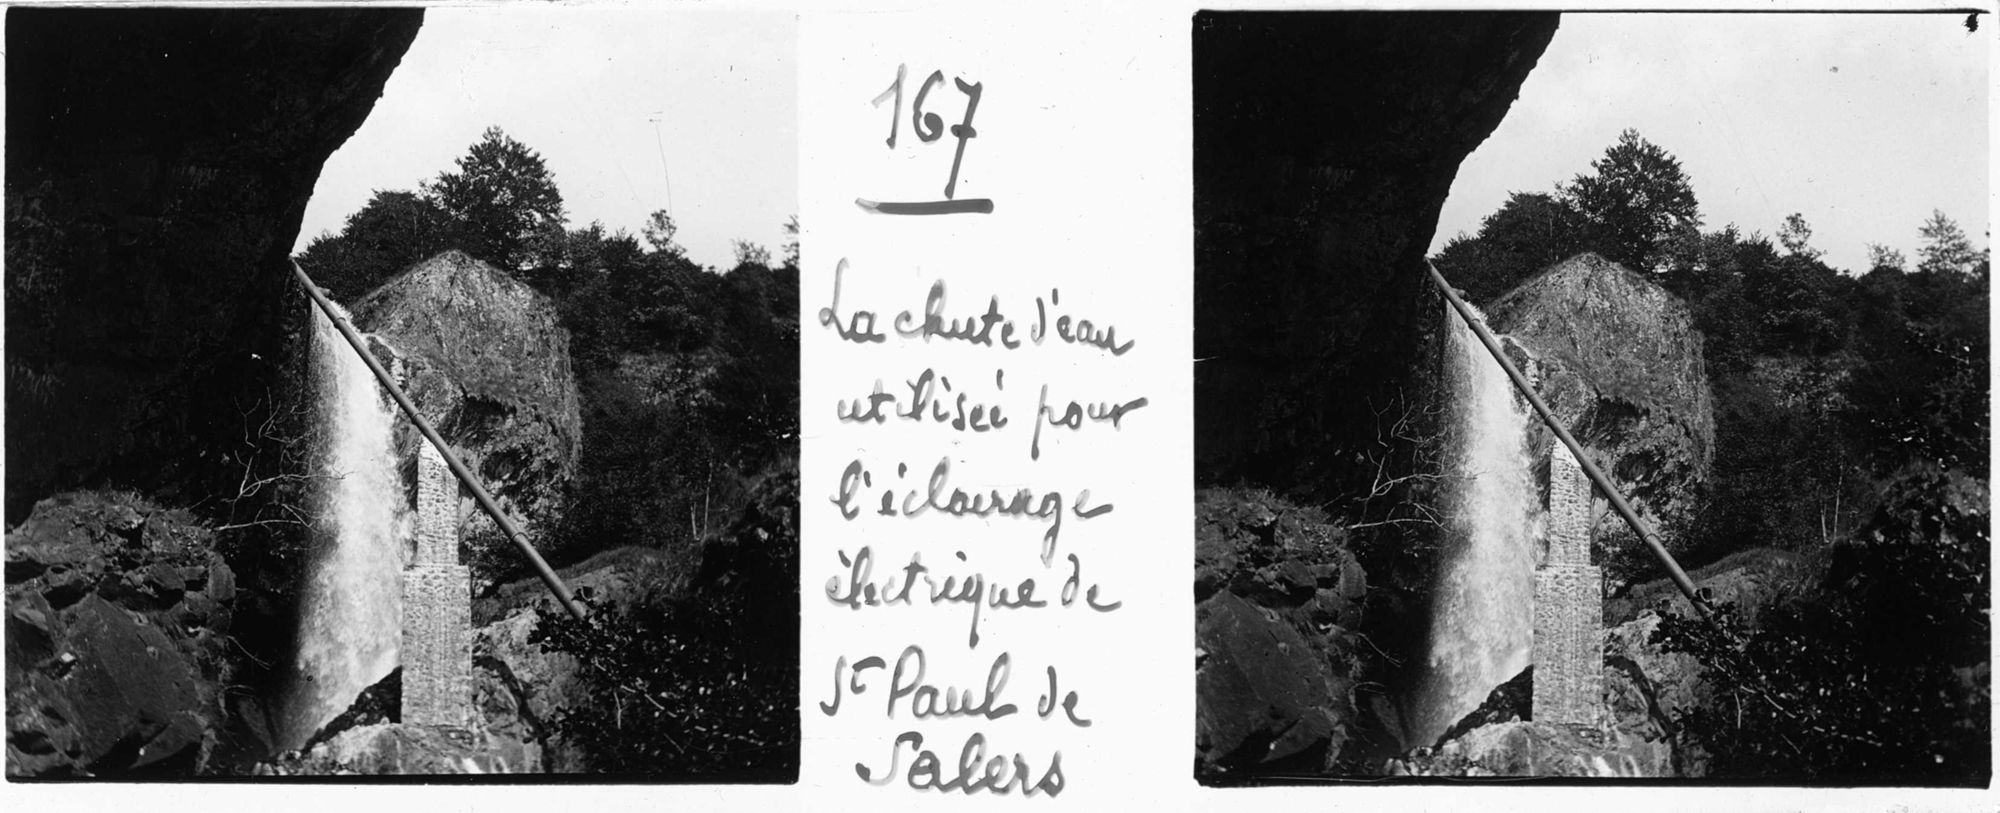 167
La chute d'eau
utilisée pour
l'éclairage
électrique de
St Paul de
Salers